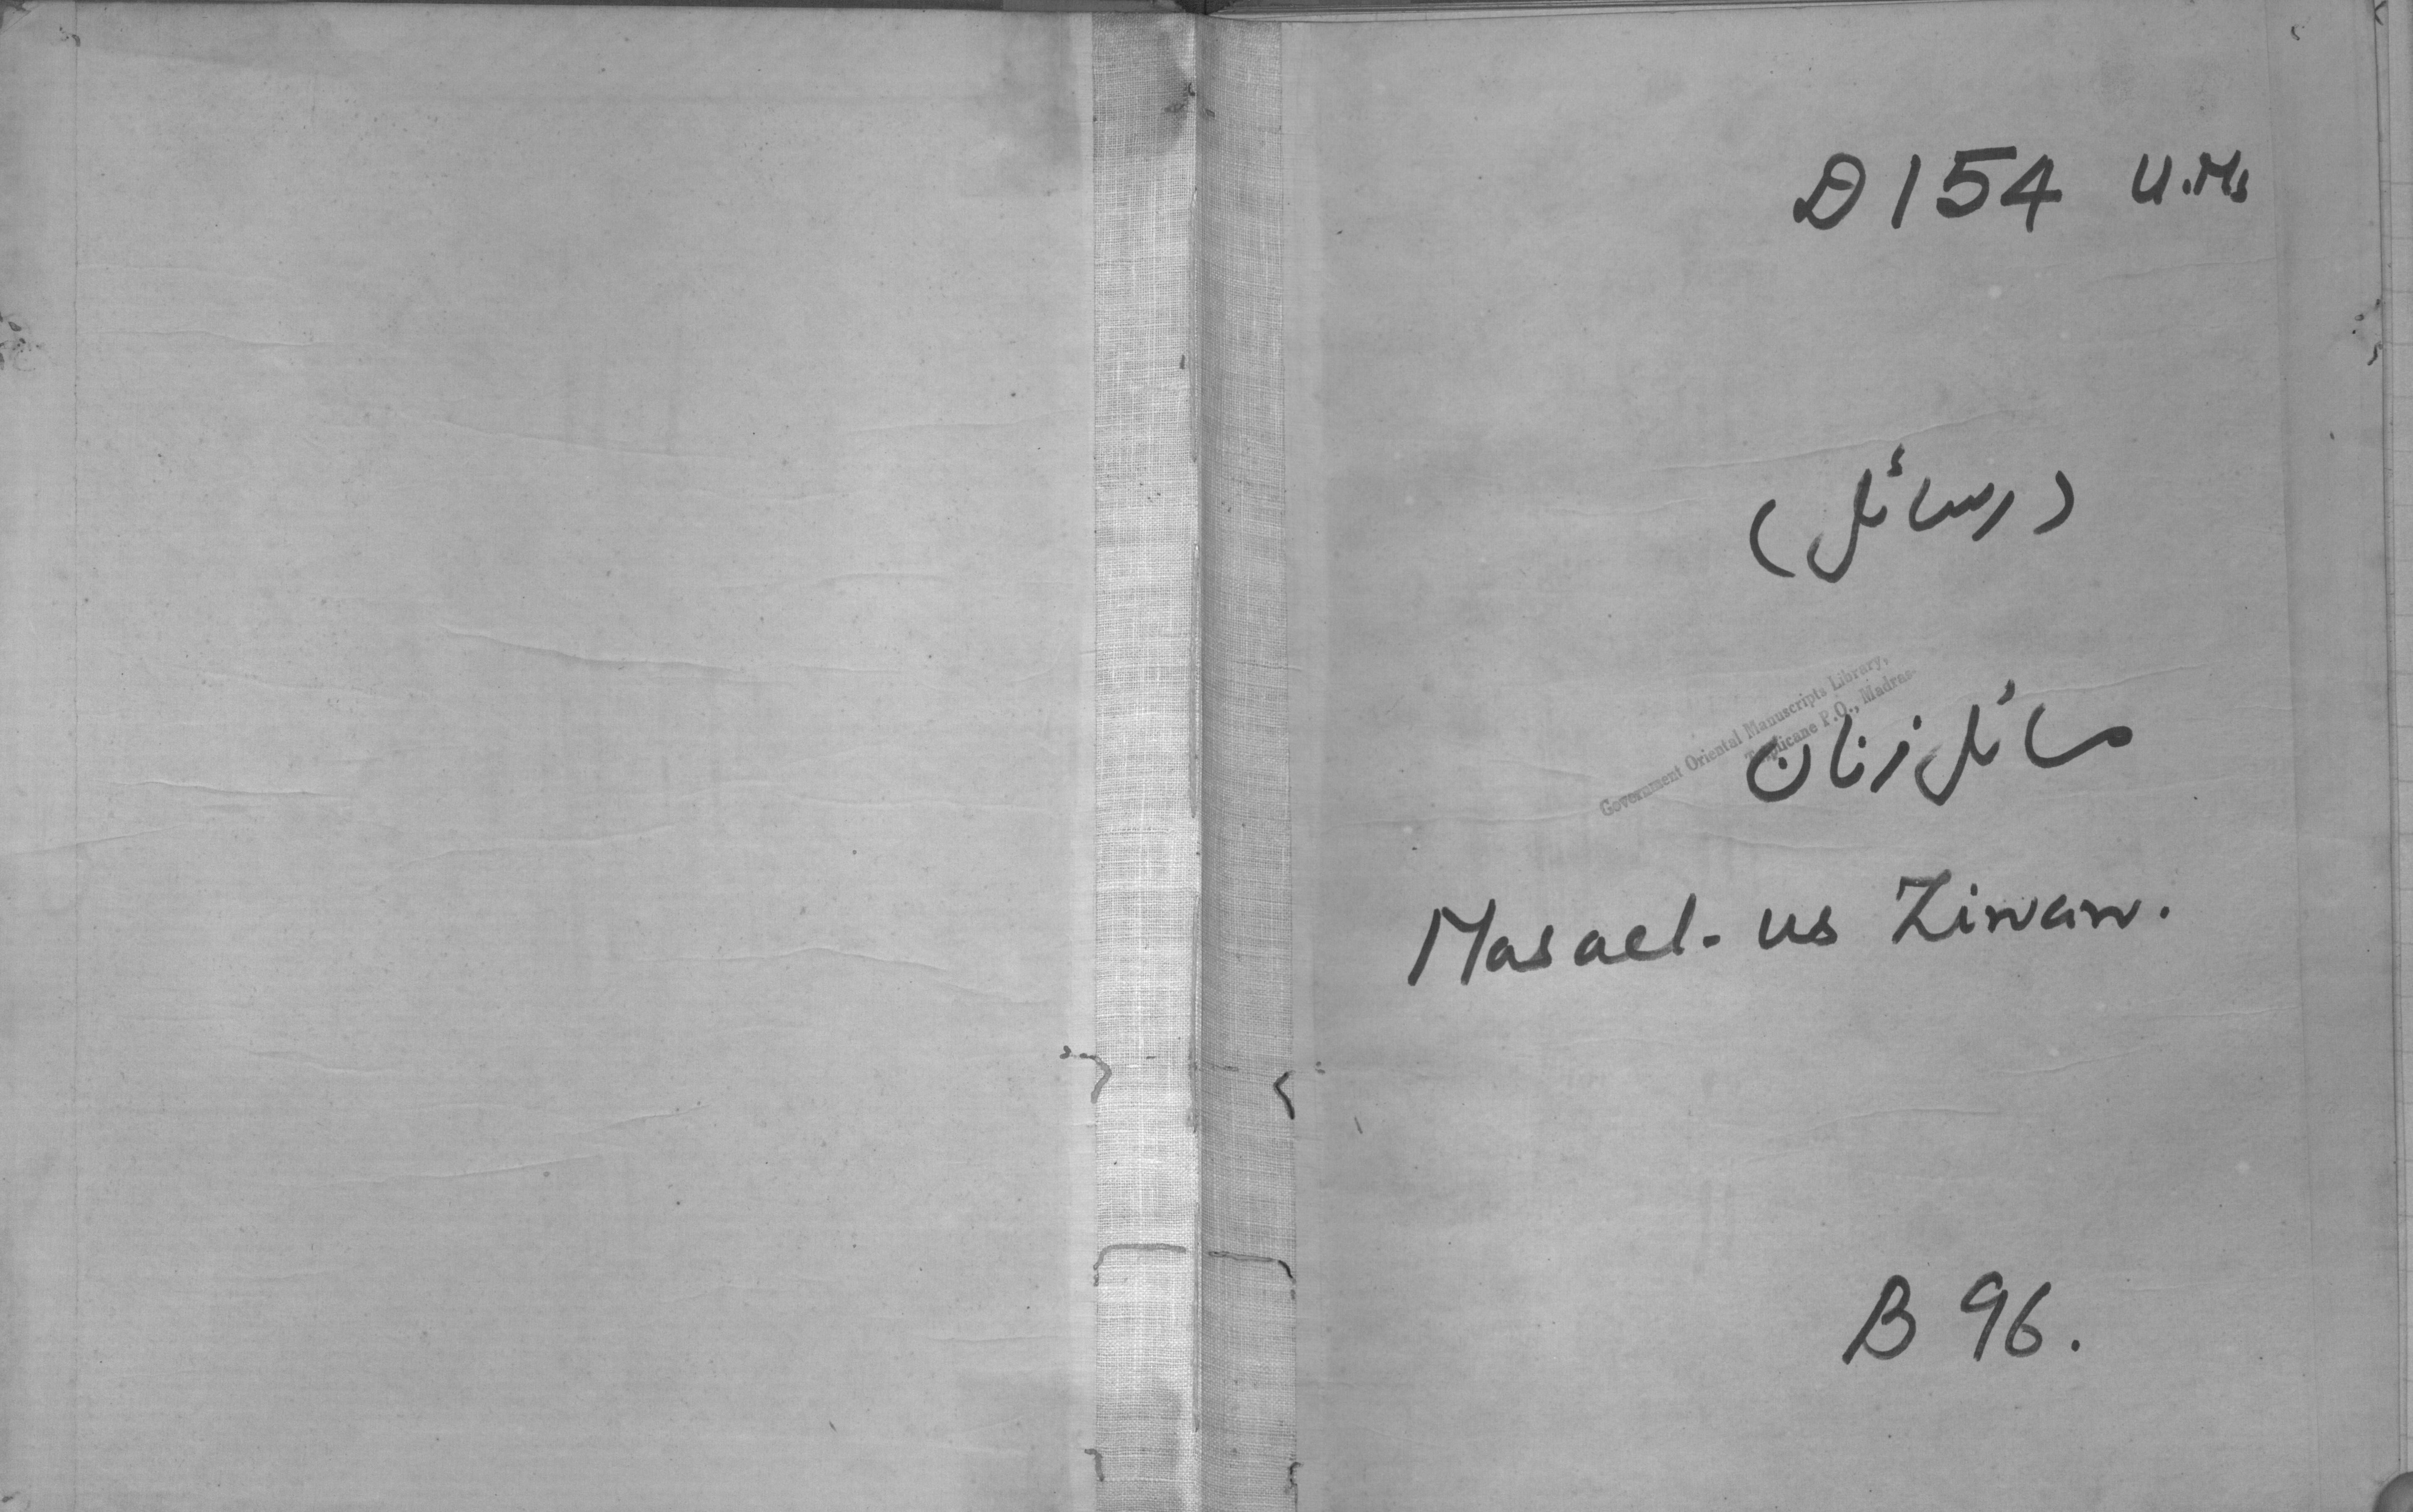 D 154 U.Ms
(رسائل)
Government Oriental Manuscripts Library,
Triplicane P.O., Madras.
مسائل زنان
Masael-us Zinan.
B 96.